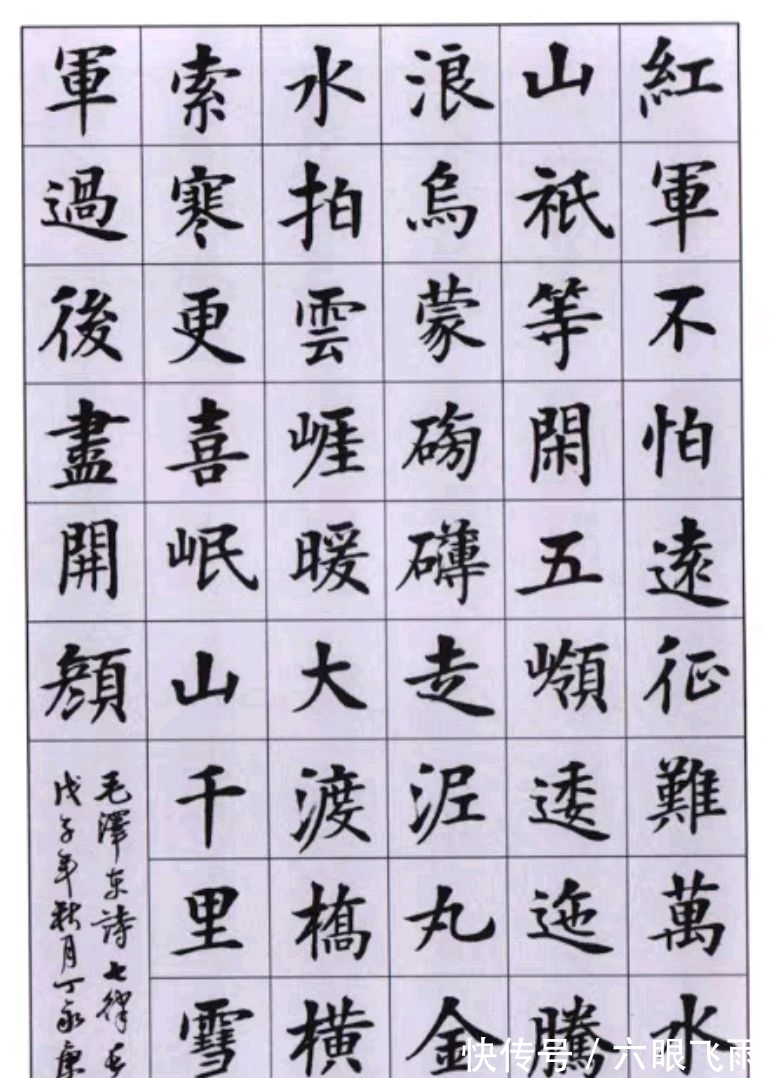 紅軍不怕遠征難萬水
山祇等閑五嶺逶迤騰
浪烏蒙磅礴走泥丸金
水拍雲崕暖大渡橋橫
索寒更喜岷山千里雪
軍過後盡開顏
毛澤東詩七律長
戊子年秋月丁永康
快传号 / 六眼飞雨